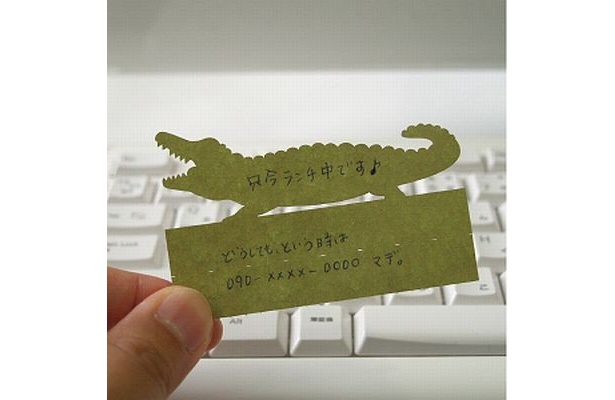 只今ランチ中です♪
どうしても、という時は
090-xxxx-0000 マデ。
Alt
無変換